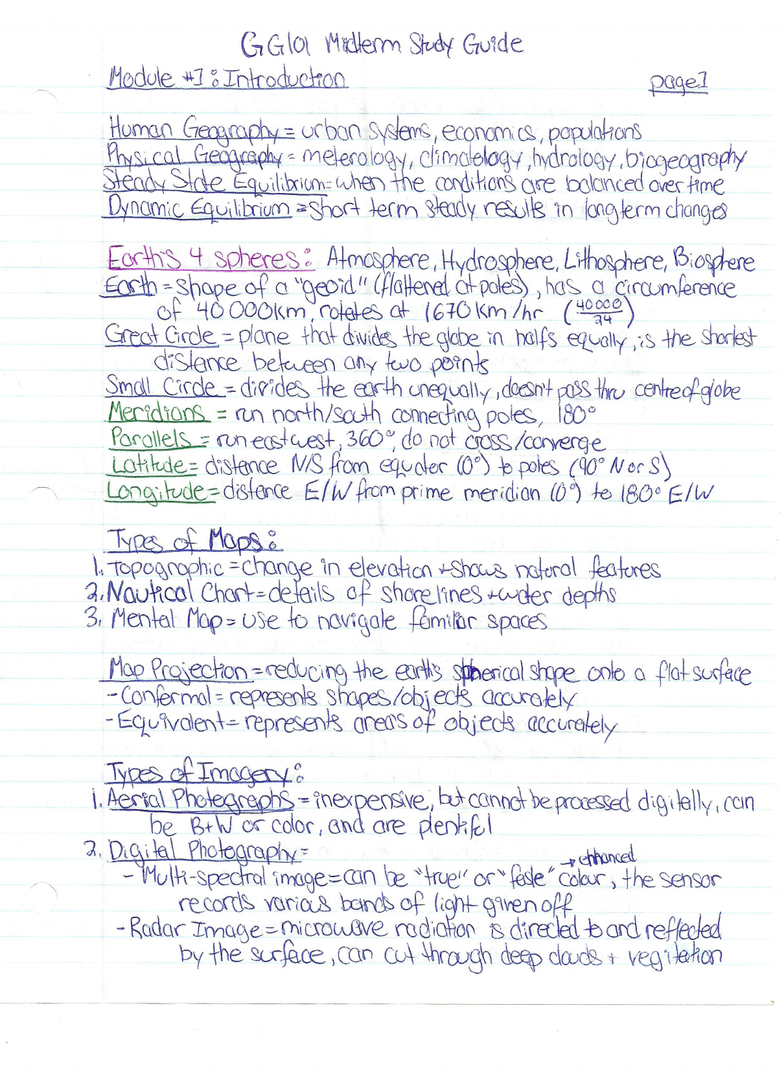 GG101 Midterm Study Guide
Module #1: Introduction
page 1
Human Geography = urban systems, economics, populations
Physical Geography = meterology, climatology, hydrology, biogeography
Steady State Equilibrium = when the conditions are balanced over time
Dynamic Equilibrium = short term steady results in long term changes
Earth's 4 spheres: Atmosphere, Hydrosphere, Lithosphere, Biosphere
Earth = shape of a "geoid" (flattened at poles), has a circumference
of 40 000km, rotates at 1670 km/hr (40000/24)
Great Circle = plane that divides the globe in halfs equally, is the shortest
distance between any two points
Small Circle = divides the earth unequally, doesn't pass thru centre of globe
Meridians = run north/south connecting poles, 180°
Parallels = run east west, 360°, do not cross/converge
Latitude = distance N/S from equator (0°) to poles (90° N or S)
Longitude = distance E/W from prime meridian (0°) to 180° E/W
Types of Maps:
1. Topographic = change in elevation + shows natural features
2. Nautical Chart = details of shorelines + water depths
3. Mental Map = use to navigate familiar spaces
Map Projection = reducing the earth's spherical shape onto a flat surface
- Conformal = represents shapes/objects accurately
- Equivalent = represents areas of objects accurately
Types of Imagery:
1. Aerial Photographs = inexpensive, but cannot be processed digitally, can
be B+W or color, and are plentiful
2. Digital Photography =
→ enhanced
- Multi-spectral image = can be "true" or "false" colour, the sensor
records various bands of light given off
- Radar Image = microwave radiation is directed to and reflected
by the surface, can cut through deep clouds + vegitation